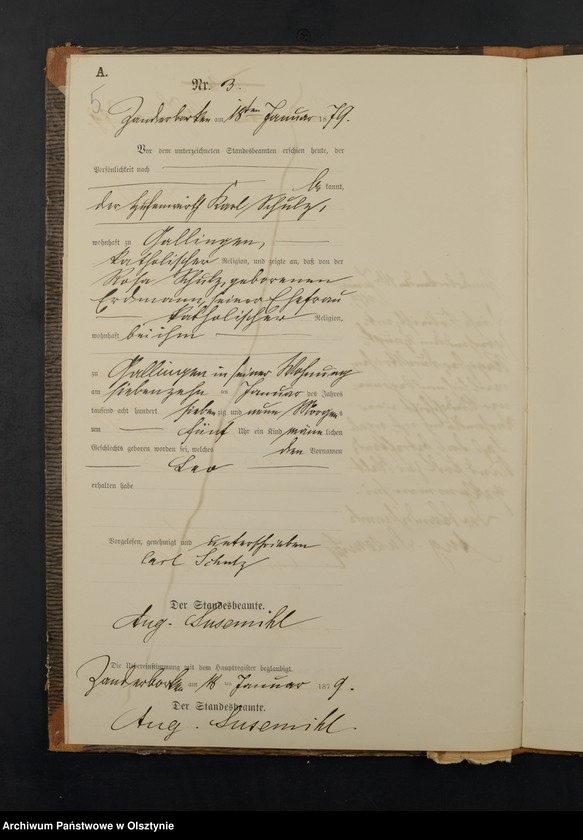 A.
Nr. 3.
5
Zanderborken am 18ten Januar 1879.
Vor dem unterzeichneten Standesbeamten erschien heute, der
Persönlichkeit nach
bekannt,
der Karl Schulz,
wohnhaft zu Gallingen,
katholischer Religion, und zeigte an, daß von der
Rosa Schulz, geborenen
Erdmann, seiner Ehefrau
katholischer Religion,
wohnhaft bei ihm
zu Gallingen in seiner Wohnung
am siebenzehn ten Januar des Jahres
tausend acht hundert siebenzig und neun Morgens
um fünf Uhr ein Kind männlichen
Geschlechts geboren worden sei, welches den Vornamen
Leo
erhalten habe
Vorgelesen, genehmigt und unterschrieben
Carl Schulz
Der Standesbeamte.
Aug. Susemihl
Die Uebereinstimmung mit dem Hauptregister beglaubigt.
Zanderborken am 18 ten Januar 1879.
Der Standesbeamte.
Aug. Susemihl.
Archiwum Państwowe w Olsztynie